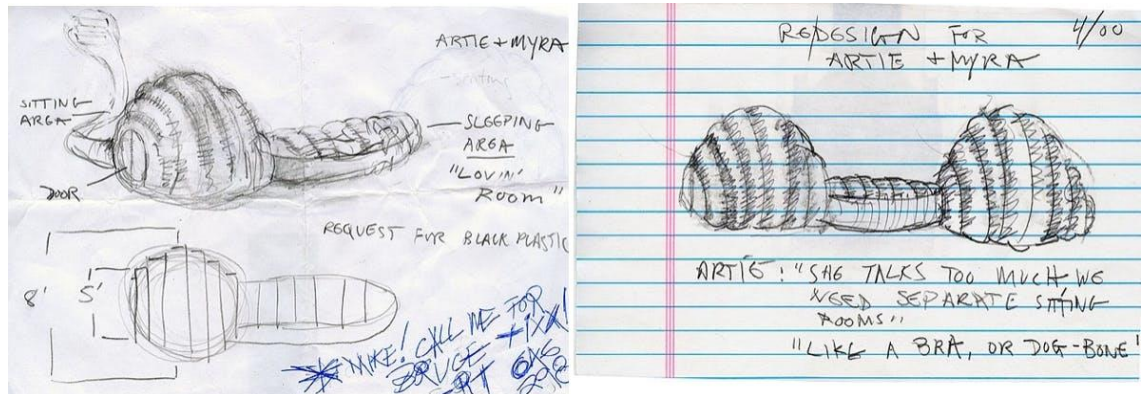 ARTIE + MYRA
SITTING
AREA
DOOR
SLEEPING
AREA
"LOVIN'
ROOM"
REQUEST FOR BLACK PLASTIC
8'
5'
MIKE! CALL ME FOR
REDESIGN FOR
4/00
ARTIE + MYRA
ARTIE: "SHE TALKS TOO MUCH WE
NEED SEPARATE SITTING
ROOMS"
"LIKE A BRA, OR DOG-BONE"